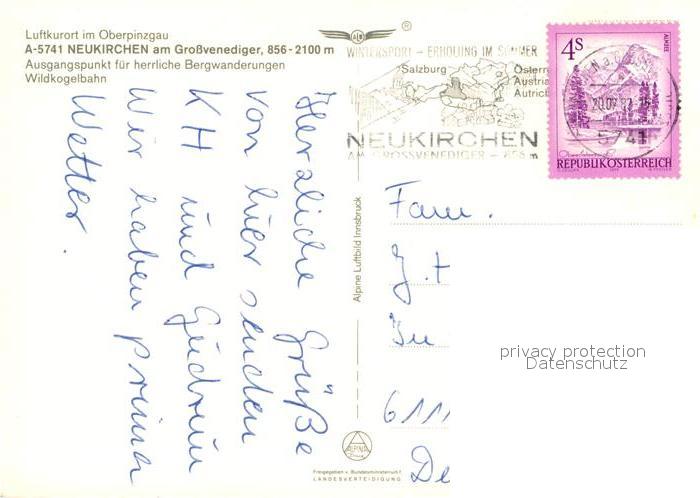 Luftkurort im Oberpinzgau
A-5741 NEUKIRCHEN am Großvenediger, 856-2100 m
Ausgangspunkt für herrliche Bergwanderungen
Wildkogelbahn
®
WINTERSPORT - ERHOLUNG IM SOMMER
Salzburg
Österr
Austria
Autrich
NEUKIRCHEN
AM GROSSVENEDIGER - 856 m
4s
5741
REPUBLIK ÖSTERREICH
Herzliche Grüße
von hier senden
KH und Gudrun
Wir haben prima
Wetter.
Alpine Luftbild Innsbruck
Fam.
J. t
In
6111
De
privacy protection
Datenschutz
ALPINA
Freigegeben v. Bundesministerium f.
LANDESVERTEIDIGUNG